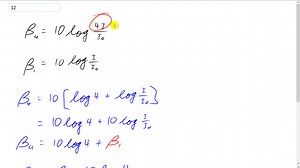 12
β₄ = 10 log 4I/I₀
β₁ = 10 log I/I₀
β₄ = 10 [log 4 + log I/I₀]
= 10 log 4 + 10 log I/I₀
β₄ = 10 log 4 + β₁